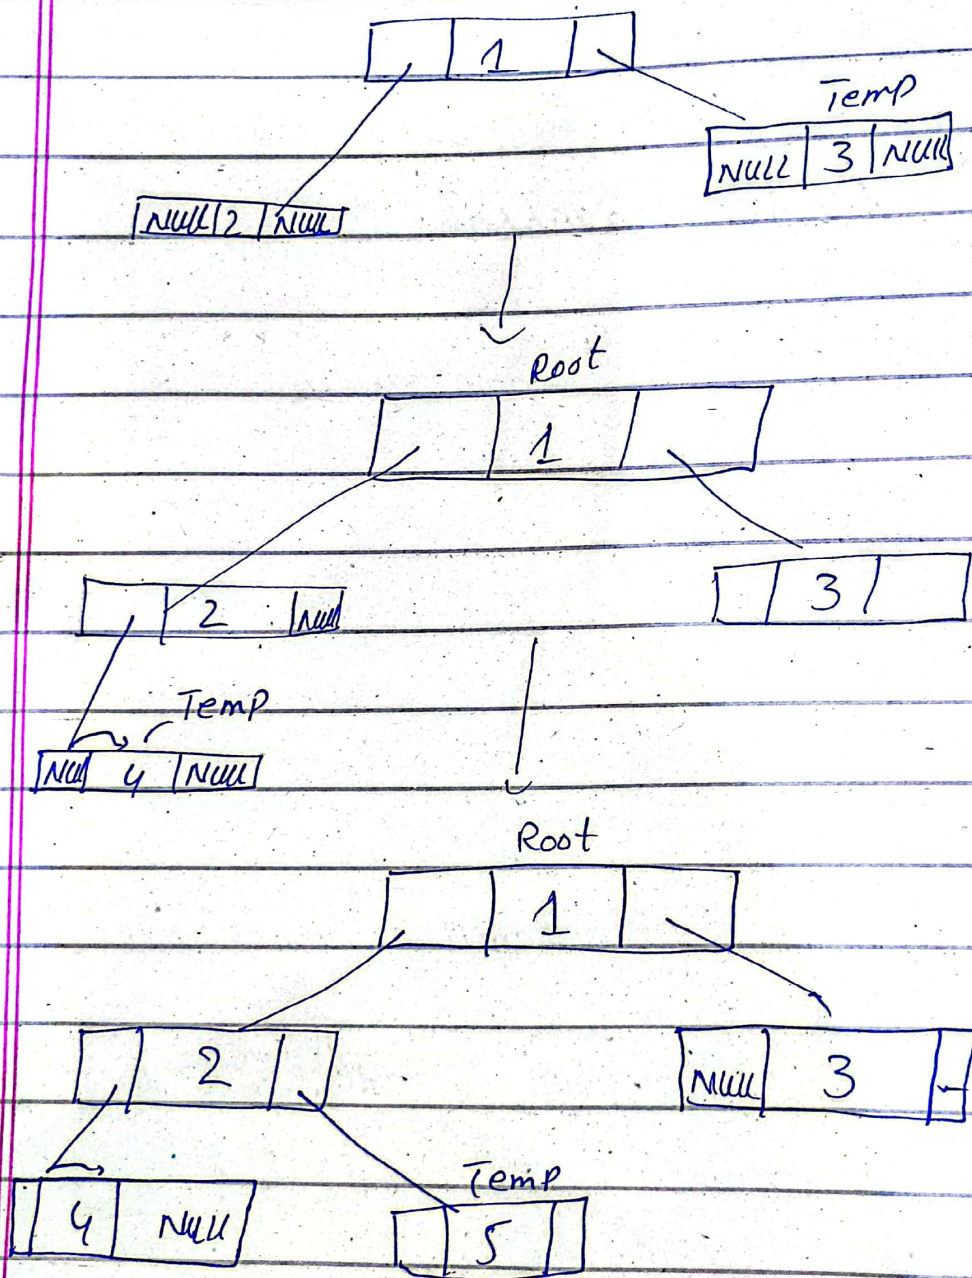 1
Temp
NULL 3 NULL
NULL 2 NULL
Root
1
3
2 NULL
Temp
NULL 4 NULL
Root
1
2
NULL 3
Temp
4 NULL
5